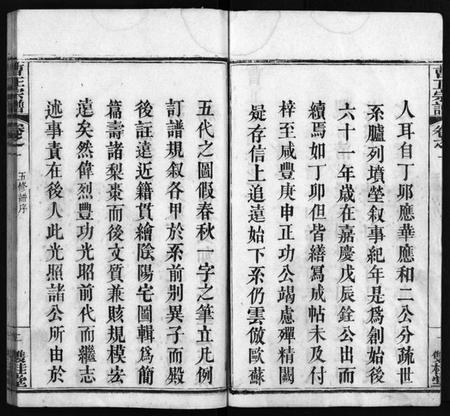 人耳自丁邜應華應和二公分疏世
系臚列墳塋叙事紀年是為創始後
六十一年歲在嘉慶戊辰銓公出而
續焉如丁邜但皆繕冩成帖未及付
梓至咸豐庚申正功公竭慮殫精闕
疑存信上追遠始下系仍雲倣歐蘇
五代之圖假春秋一字之筆立凡例
訂譜規叙各甲於系前別異子而殿
後註遠近籍貫繪陰陽宅圖輯為簡
篇壽諸梨棗而後文質兼賅規模宏
遠矣然偉烈豐功光昭前代而繼志
述事責在後人此光照諸公所由於
曹氏宗譜
卷之一
五修譜序
雙桂堂